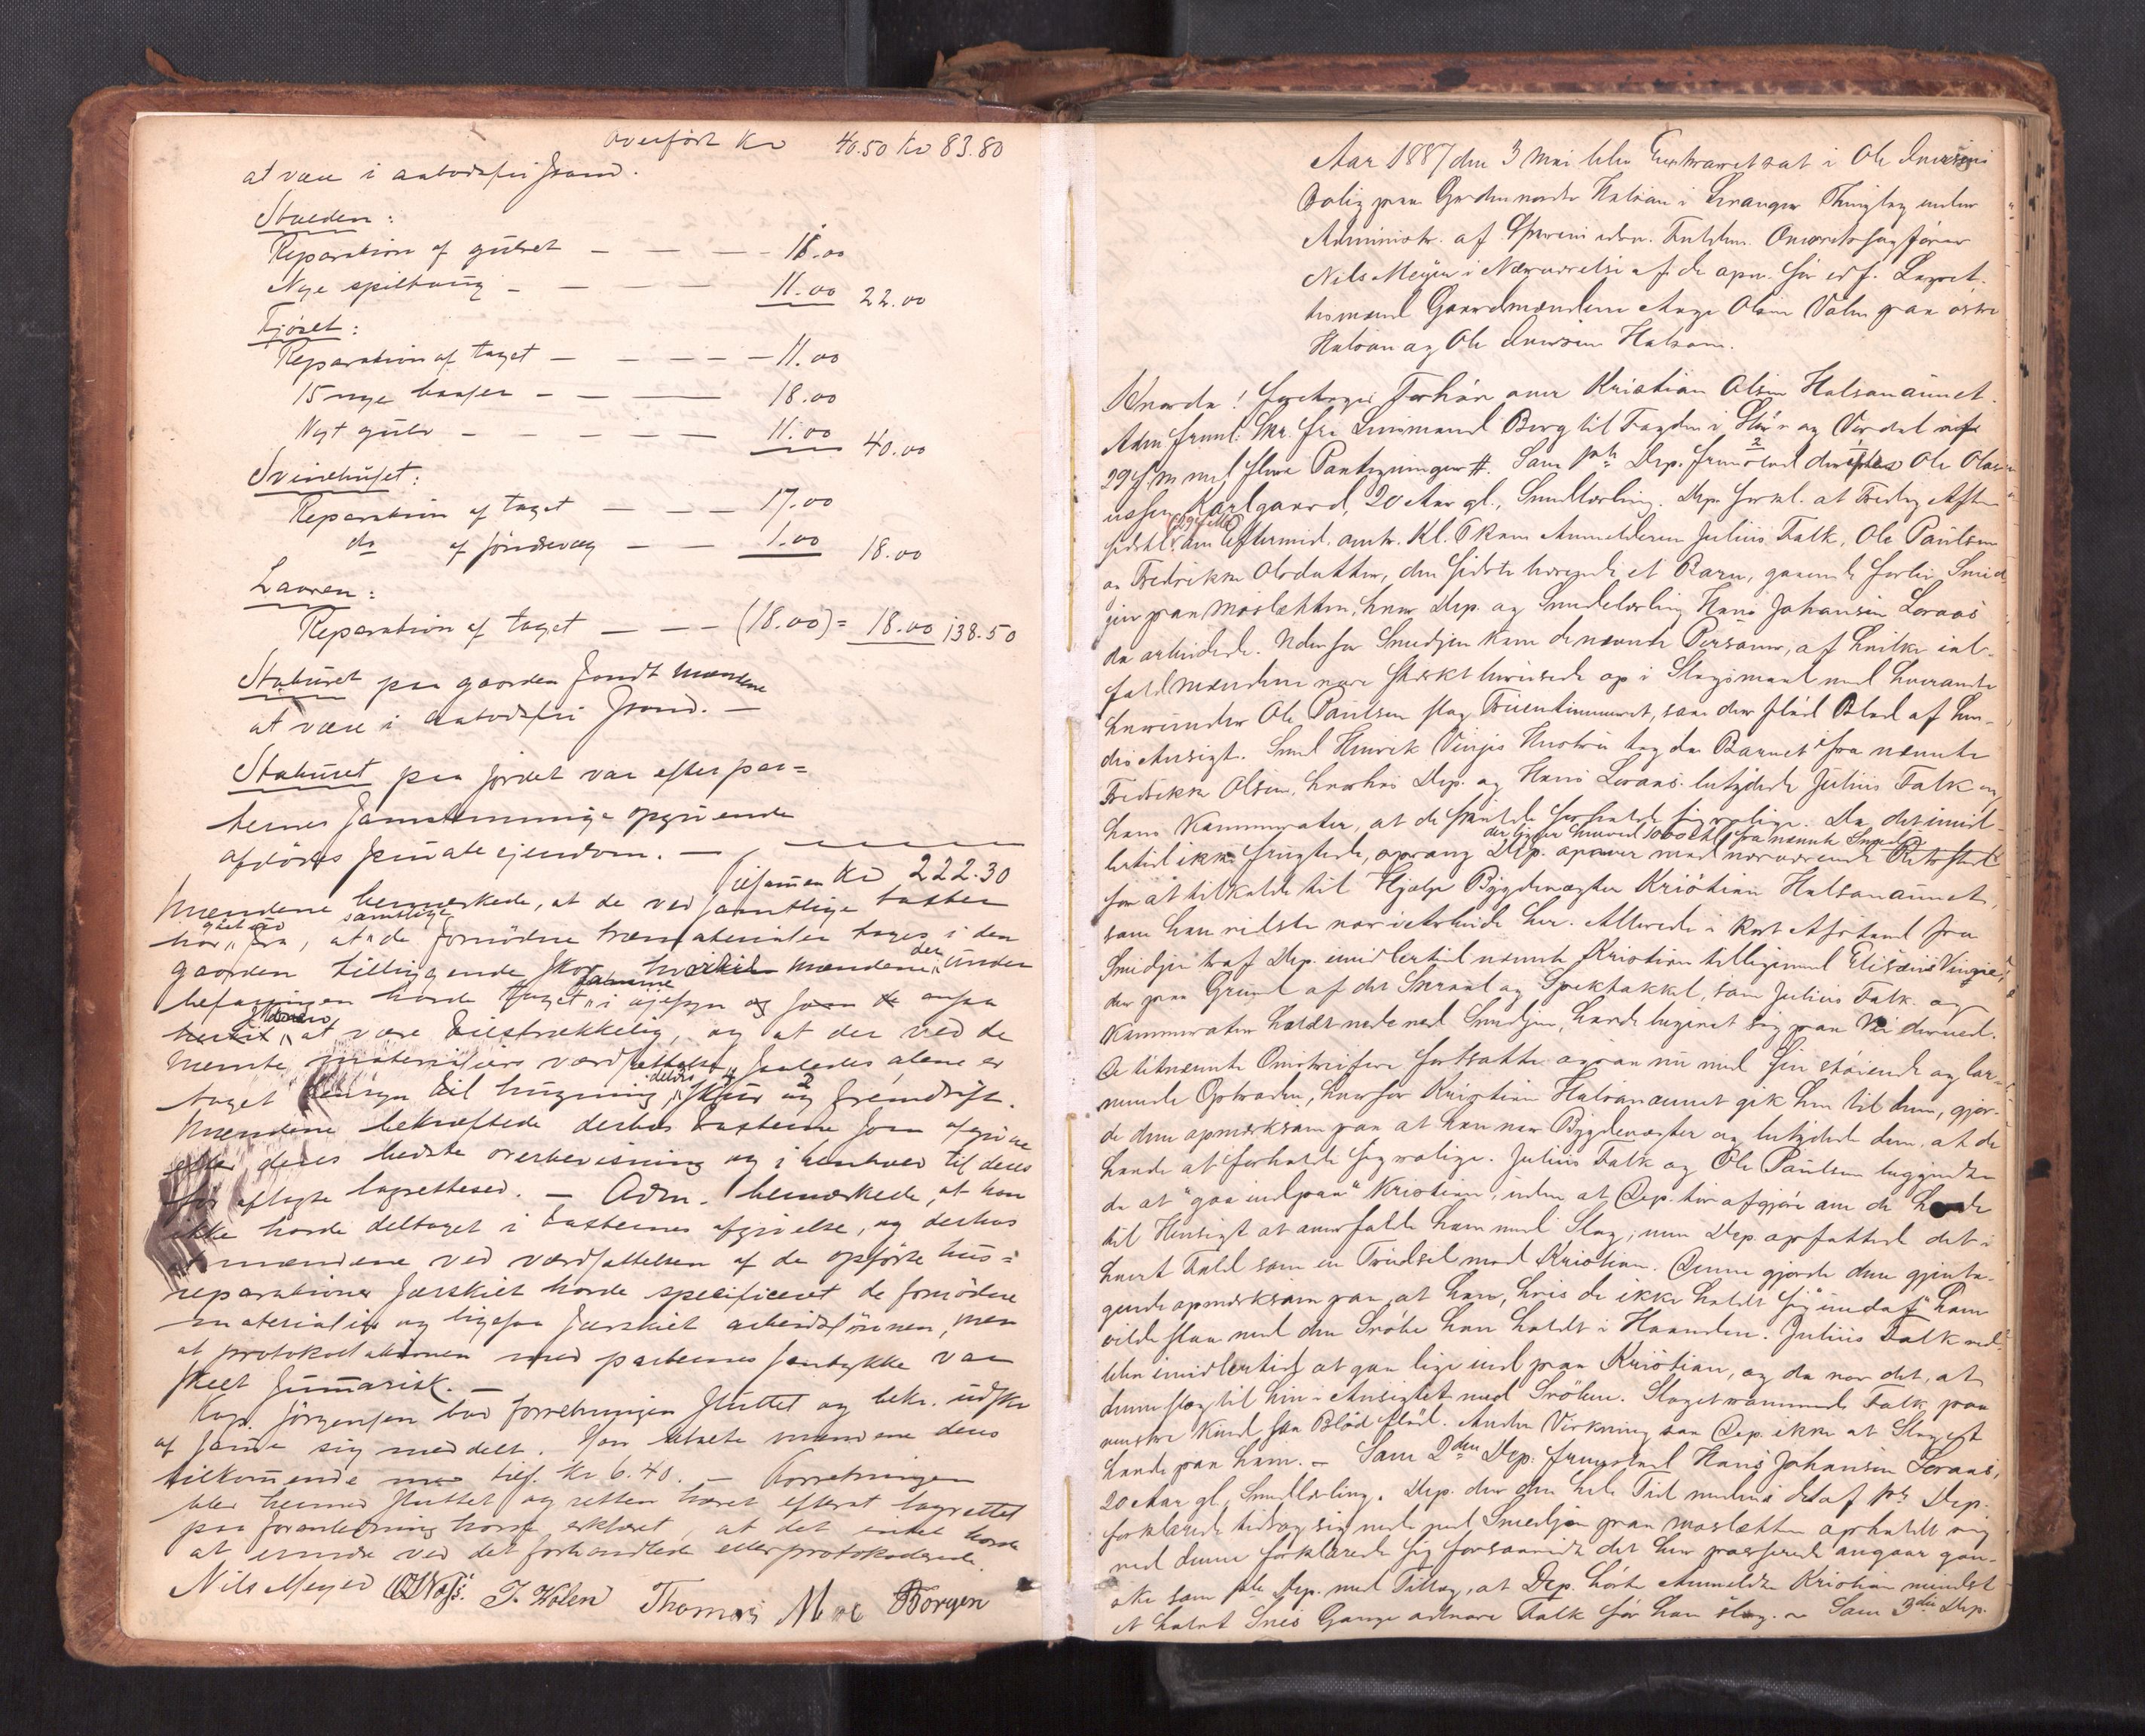 Overført Kr 40.50 Kr 83.80
at være i aabodsfri stand.
Stalden:
Reparation af gulvet — — — 11.00
Nye spiltoug — — — — 11.00 22.00
Fjøset:
Reparation af taget — — — — 11.00
15 nye baaser — — — 18.00
Nyt gulv — — — — 11.00 40.00
Svinehuset:
Reparation af taget — — — 17.00
do af søndre væg — — 1.00 18.00
Laaven:
Reparation af taget — — — (18.00) = 18.00 138.50
Staburet paa gaarden fandt mændene
at være i aabodsfri stand. —
Staburet paa jordet var efter par=
ternes samstemmige opgivende
afdødes private ejendom. —
Tilsammen Kr 222.30
Mændene bemærkede, at de ved samtlige taxter
har gaaet ud fra, at samtlige de fornødne træmaterialer tages i den
gaarden tilliggende skov, hvilken mændene der under
befaringen havde taget samme i øjesyn og som de ansaa
at være tilstrækkelig, og at der ved de
nævnte materialiers værdsættelse saaledes alene er
taget hensyn til hugning, skur og fremdrift.
Mændene bekræftede derhos taxterne som afgivne
efter deres bedste overbevisning og i henhold til deres
før aflagte lagretteed. — Adm. bemærkede, at han
ikke havde deltaget i taxternes afgivelse, og derhos
at mændene ved værdsættelsen af de opførte hus=
reparationer særskilt havde specificeret de fornødne
materialier og ligesaa særskilt arbeidslønnen, men
at protokollationen med parternes samtykke var
skeet summarisk. —
Kap. Jørgensen bad forretningen sluttet og bekr. udskr.
af samme sig meddelt. Han udbetalte mændene deres
tilkommende med tils. Kr. 6.40. — Forretningen
blev hermed sluttet og retten hævet efterat lagrettet
paa foranledning havde erklæret, at det intet havde
at erindre ved det forhandlede eller protokollerede
Nils Meyer O Næss. J. Holen Thomas Moe Borgen
Aar 1887 den 3 Mai blev Extraret sat i Ole Iversens
Bolig paa Gaarden nordre Halsan i Levanger Thinglag under
Administr. af Sorenskr. edsv. Fuldm. Overretssagfører
Nils Meyer i Nærværelse af de opn. før edf. Lagret-
tesmænd Gaardmændene Aage Olsen Valen paa østre
Halsan og Ole Iversen Halsan.
Hvorda! foretoges Forhør over Kristian Olsen Halsanaunet.
Adm freml: Skr. fra Lensmand Borg til Fogden i Stør- og Værdal af
29 f. M. med flere Paategninger #. Som 1ste Dep. fremstod Ole Olau-
ussen Karlgaard, 20 Aar gl., Smedlærling. Dep. forkl. at Fredag Aften
sidstl. (29 April) om Eftermid. omtr. Kl. 6 kom Anmelderen Julius Falk, Ole Paulsen
og Fredrikke Olsdatter, den sidste bærende et Barn, gaaende forbi Smed-
jen paa Moslætten, hvor Dep. og Smedelærling Hans Johansen Loraas
da arbeidede. Udenfor Smedjen kom de nævnte Personer, af hvilke ial-
fald Mændene vare stærkt berusede op i Slagsmaal med hverandre
herunder Ole Paulsen slog Fruentimmeret, saa der flød Blod af hen-
des Ansigt. Smed Henrik Vinjes Hustru tog da Barnet fra nævnte
Fredrikke Olsen, hvorhos Dep. og Hans Loraas betydede Julius Falk og
hans Kammerater, at de skulde forholde sig rolige. Da det imid-
der ligger henved 1000 Al. fra nævnte Smedje
lertid ikke frugtede, sprang Dep. opover mod nærværende Retssted
for at tilkalde til Hjælp Bygdevægter Kristian Halsanaunet,
som han vidste var i Arbeide her. Allerede i kort Afstand fra
Smedjen traf Dep. imidlertid nævnte Kristian tilligemed Elisæus Vinje,
der paa Grund af det Skraal og Spektakkel, som Julius Falk og
Kammerater holdt nede ved Smedjen, havde begivet sig paa Vei derned.
De tilnævnte Omstreifere fortsatte ogsaa nu med sin støiende og lar-
mende Optræden, hvorfor Kristian Halsanaunet gik hen til dem, gjor-
de dem opmærksom paa at han var Bygdevægter og betydede dem, at de
havde at forholde sig rolige. Julius Falk og Ole Paulsen begyndte
da at "gaa indpaa" Kristian, uden at Dep. tør afgjøre om de havde
til Hensigt at overfalde ham med Slag; men Dep. opfattede det i
hvert Fald som en Trudsel mod Kristian. Denne gjorde dem gjenta-
gende opmærksom paa, at han, hvis de ikke holdt sig "undaf" ham
vilde slaa med den Svøbe han holdt i Haanden. Julius Falk ved-
blev imidlertid at gaa lige ind paa Kristian, og da var det, at
denne slog til hin i Ansigtet med Svøben. Slaget rammede Falk paa
venstre Kind saa Blod flød. Anden Virkning saa Dep. ikke at Slaget
havde paa ham. — Som 2den Dep. fremstod Hans Johansen Loraas,
20 Aar gl., Smedlærling. Dep. der den hele Tid medens det af 1ste Dep.
forklarede tildrog sig nede ved Smedjen paa Moslætten opholdt sig
ved denne forklarede sig forsaavidt det her passerede angaar gan-
ske som 1ste Dep. med Tillæg, at Dep. hørte Anmeldte Kristian mindst
et halvt Snes Gange advare Falk før han slog. — Som 3die Dep.